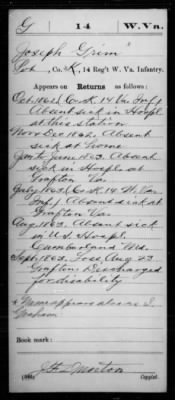 G 14 W. Va.
Joseph Grim
Co. K, 14 Reg't W. Va. Infantry.
Appears on Returns as follows:
Oct. 1862, Co. K. 14 Va Inf.
Absent sick in Hosp'l
at this station
Nov & Dec 1862, Absent
sick at home
Jan to June 1863. Absent
sick in Hospl at
Grafton Va.
July 1863, Co. K 14 W. Va
Inf. Absent sick at
Grafton Va.
Aug 1863, Absent sick
in U.S. Hospl.
Cumberland Md.
Sept 1863, Loss, Aug 23
Grafton, Discharged
for disability
Name appears also as
Book mark:
Copyist.